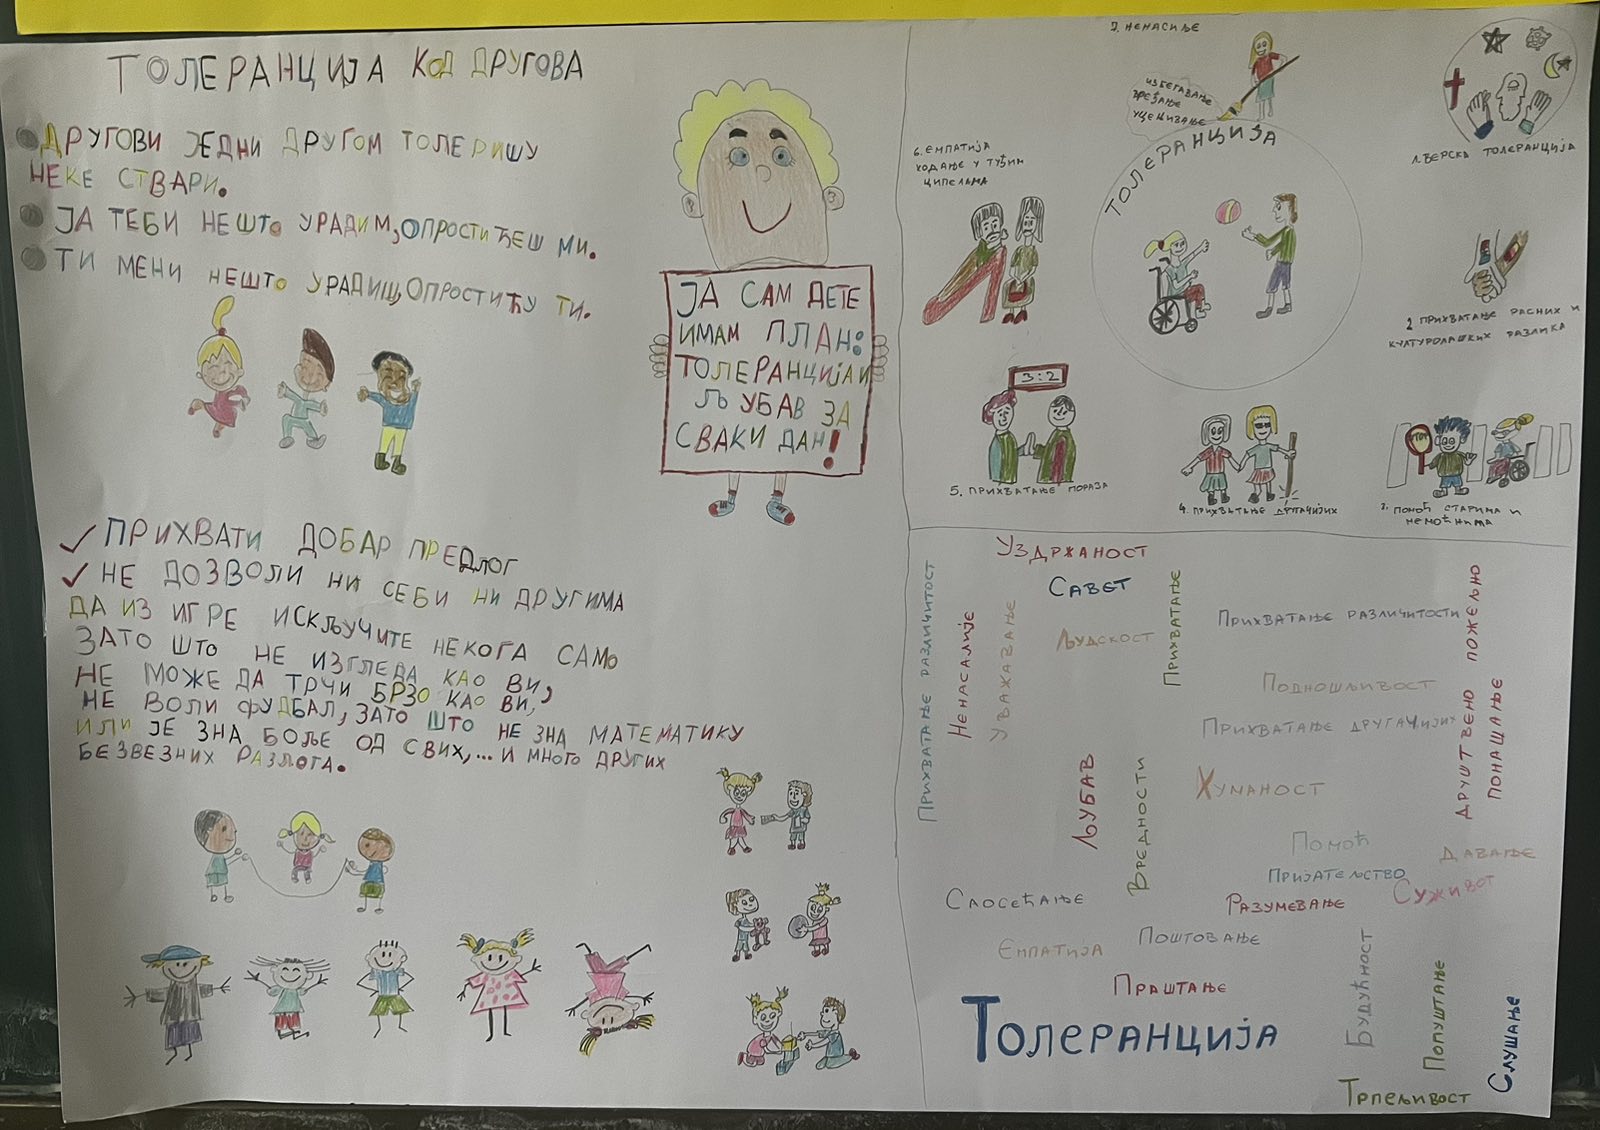 ТОЛЕРАНЦИЈА КОД ДРУГОВА
ДРУГОВИ ЈЕДНИ ДРУГОМ ТОЛЕРИШУ
НЕКЕ СТВАРИ.
ЈА ТЕБИ НЕШТО УРАДИМ, ОПРОСТИЋЕШ МИ.
ТИ МЕНИ НЕШТО УРАДИШ, ОПРОСТИЋУ ТИ.
ЈА САМ ДЕТЕ
ИМАМ ПЛАН:
ТОЛЕРАНЦИЈА И
ЉУБАВ ЗА
СВАКИ ДАН!
ПРИХВАТИ ДОБАР ПРЕДЛОГ
НЕ ДОЗВОЛИ НИ СЕБИ НИ ДРУГИМА
ДА ИЗ ИГРЕ ИСКЉУЧИТЕ НЕКОГА САМО
ЗАТО ШТО НЕ ИЗГЛЕДА КАО ВИ,
НЕ МОЖЕ ДА ТРЧИ БРЗО КАО ВИ,
НЕ ВОЛИ ФУДБАЛ, ЗАТО ШТО НЕ ЗНА МАТЕМАТИКУ
ИЛИ ЈЕ ЗНА БОЉЕ ОД СВИХ,... И МНОГО ДРУГИХ
БЕЗВЕЗНИХ РАЗЛОГА.
ТОЛЕРАНЦИЈА
1. ВЕРСКА ТОЛЕРАНЦИЈА
2 ПРИХВАТАЊЕ РАСНИХ И
КУЛТУРОЛАШКИХ РАЗЛИКА
STOP
3. ПОМОЋ СТАРИМА И
НЕМОЋНИМА
4. ПРИХВАТАЊЕ ДРУГАЧИЈИХ
3:2
5. ПРИХВАТАЊЕ ПОРАЗА
6. ЕМПАТИЈА
ХОДАЊЕ У ТУЂИМ
ЦИПЕЛАМА
7. НЕНАСИЉЕ
ИЗБЕГАВАЊЕ
ВРЕЂАЊЕ
УЦЕЊИВАЊЕ
УЗДРЖАНОСТ
САВЕТ
ПРИХВАТАЊЕ РАЗЛИЧИТОСТ
НЕНАСАЛИЈЕ
УВАЖАВАЊЕ
ЉУДСКОСТ
ПРИХВАТАЊЕ
ПРИХВАТАЊЕ РАЗЛИЧИТОСТИ
ПОДНОШЉИВОСТ
ПРИХВАТАЊЕ ДРУГАЧИЈИХ
ДРУШТВЕНО ПОЖЕЉНО
ПОНАШАЊЕ
ЉУБАВ
ВРЕДНОСТИ
ХУМАНОСТ
ПОМОЋ
ДАВАЊЕ
ПРИЈАТЕЉСТВО
СУЖИВОТ
САОСЕЋАЊЕ
РАЗУМЕВАЊЕ
ЕМПАТИЈА
ПОШТОВАЊЕ
ПРАШТАЊЕ
ТОЛЕРАНЦИЈА
БУДУЋНОСТ
ПОПУШТАЊЕ
СЛУШАЊЕ
ТРПЕЉИВОСТ